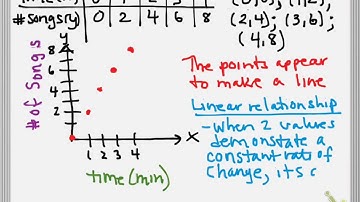 # Songs(y) 0 2 4 6 8
(2,4); (3,6);
(4,8)
y
8
6
4
2
# of Songs
1 2 3 4
x
time (min)
The points appear
to make a line
Linear relationship
- when 2 values
demonstate a
constant rate of
change, its c